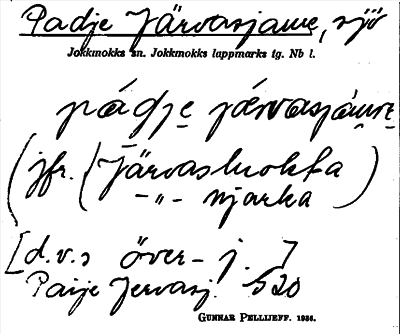 Padje Järvasjaure, sjö
Jokkmokks sn. Jokkmokks lappmarks tg. Nb l.
pádje járvasjáure
(jfr. { Järvasluokta )
–„– njarka
[d.v.s över- j. ]
Paije Jervasj. S20
GUNNAR PELLIJEFF. 1936.